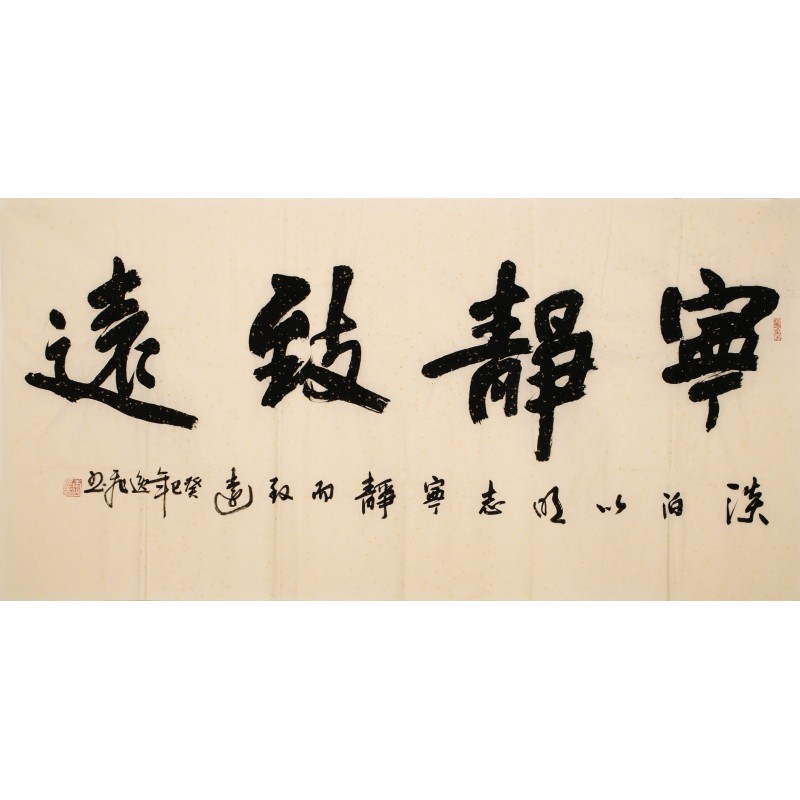 寧靜致遠
淡泊以明志寧靜而致遠
癸巳年逸飛書